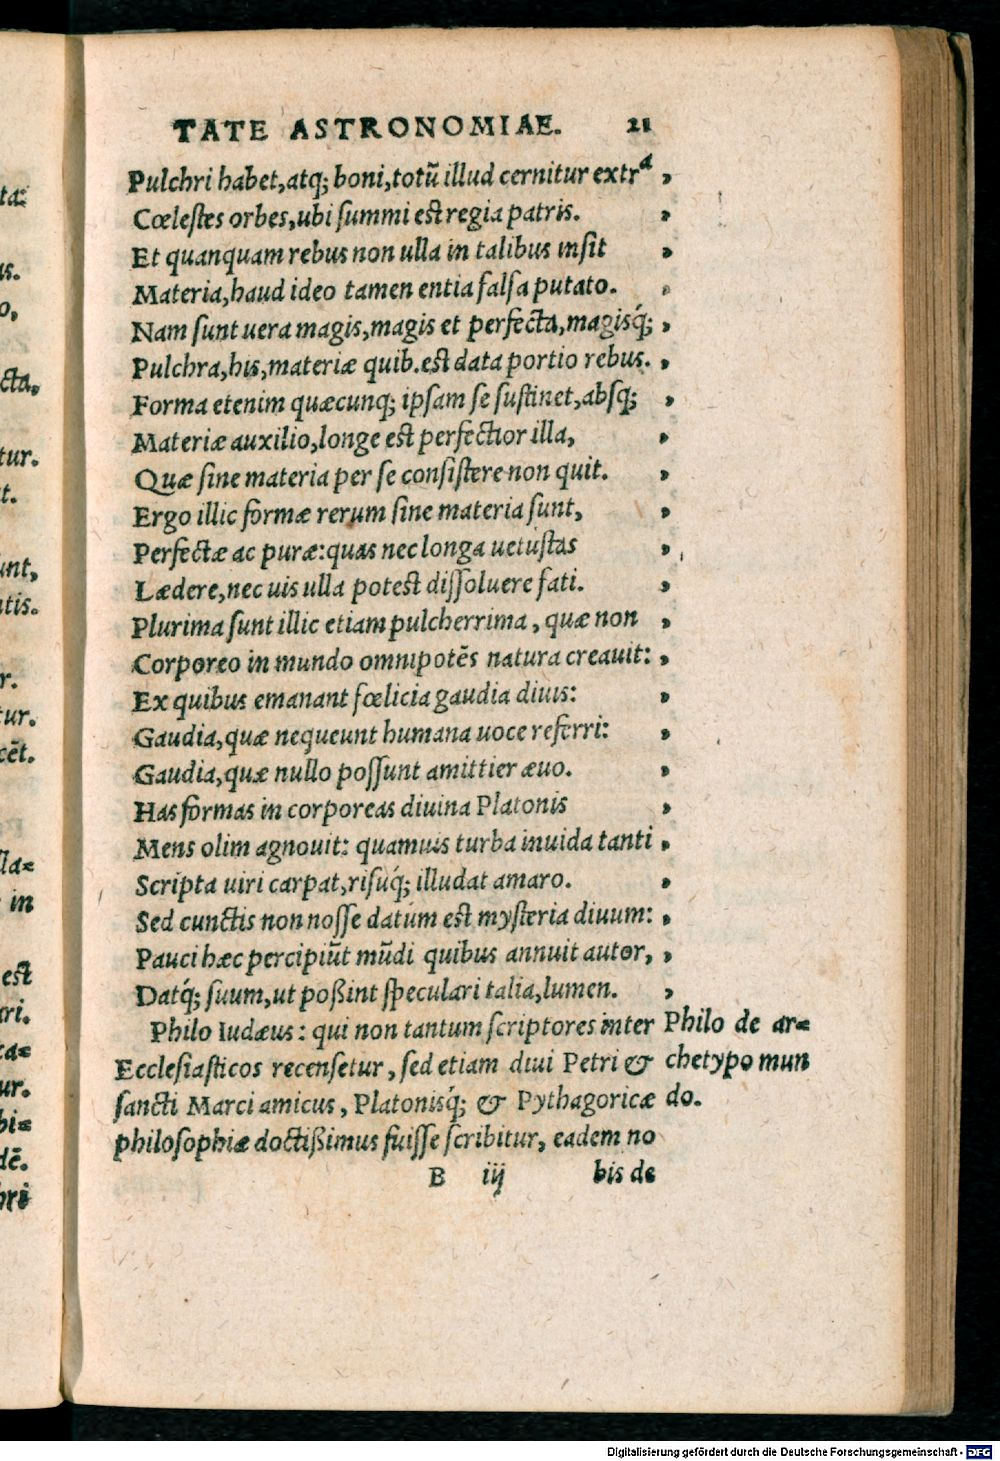 TATE ASTRONOMIAE. 21
Pulchri habet,atq; boni,totũ illud cernitur extra ,
Cœlestes orbes,ubi summi est regia patris. ,
Et quanquam rebus non ulla in talibus insit ,
Materia,haud ideo tamen entia falsa putato. ,
Nam sunt uera magis,magis et perfecta,magisq́; ,
Pulchra,his,materiæ quib.est data portio rebus. ,
Forma etenim quæcunq; ipsam se sustinet,absq; ,
Materiæ auxilio,longe est perfectior illa, ,
Quæ sine materia per se consistere non quit. ,
Ergo illic formæ rerum sine materia sunt, ,
Perfectæ ac puræ:quas nec longa uetustas ,
Lædere,nec uis ulla potest dissoluere fati. ,
Plurima sunt illic etiam pulcherrima , quæ non ,
Corporeo in mundo omnipotẽs natura creauit: ,
Ex quibus emanant fœlicia gaudia diuis: ,
Gaudia,quæ nequeunt humana uoce referri: ,
Gaudia,quæ nullo possunt amittier æuo. ,
Has formas in corporeas diuina Platonis ,
Mens olim agnouit: quamuis turba inuida tanti ,
Scripta uiri carpat,risuq́; illudat amaro. ,
Sed cunctis non nosse datum est mysteria diuum: ,
Pauci hæc percipiũt mũdi quibus annuit autor, ,
Datq́; suum,ut poßint speculari talia,lumen. ,
Philo Iudæus: qui non tantum scriptores inter
Ecclesiasticos recensetur, sed etiam diui Petri &
sancti Marci amicus, Platonisq́; & Pythagoricæ
philosophiæ doctißimus fuisse scribitur, eadem no
Philo de ar=
chetypo mun
do.
B iij bis de
ta:
us.
o,
cta,
tur.
t.
unt,
atis.
r.
tur.
cẽt.
lla=
in
est
ari.
ta=
ur.
bi=
dẽ.
bri
Digitalisierung gefördert durch die Deutsche Forschungsgemeinschaft - DFG